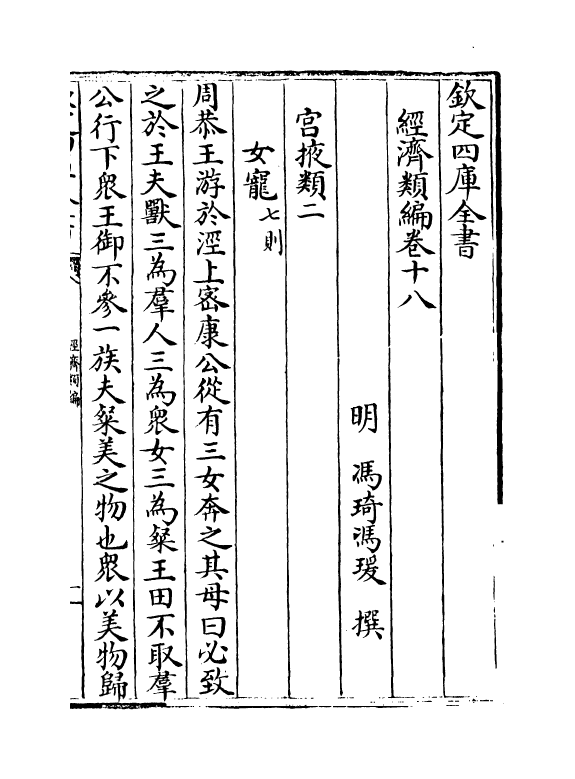 欽定四庫全書
經濟類編卷十八
明 馮琦馮瑗 撰
宫掖類二
女寵七則
周恭王游於涇上宻康公從有三女奔之其母曰必致
之於王夫獸三為羣人三為衆女三為粲王田不取羣
公行下衆王御不參一族夫粲美之物也衆以美物歸
經濟類編